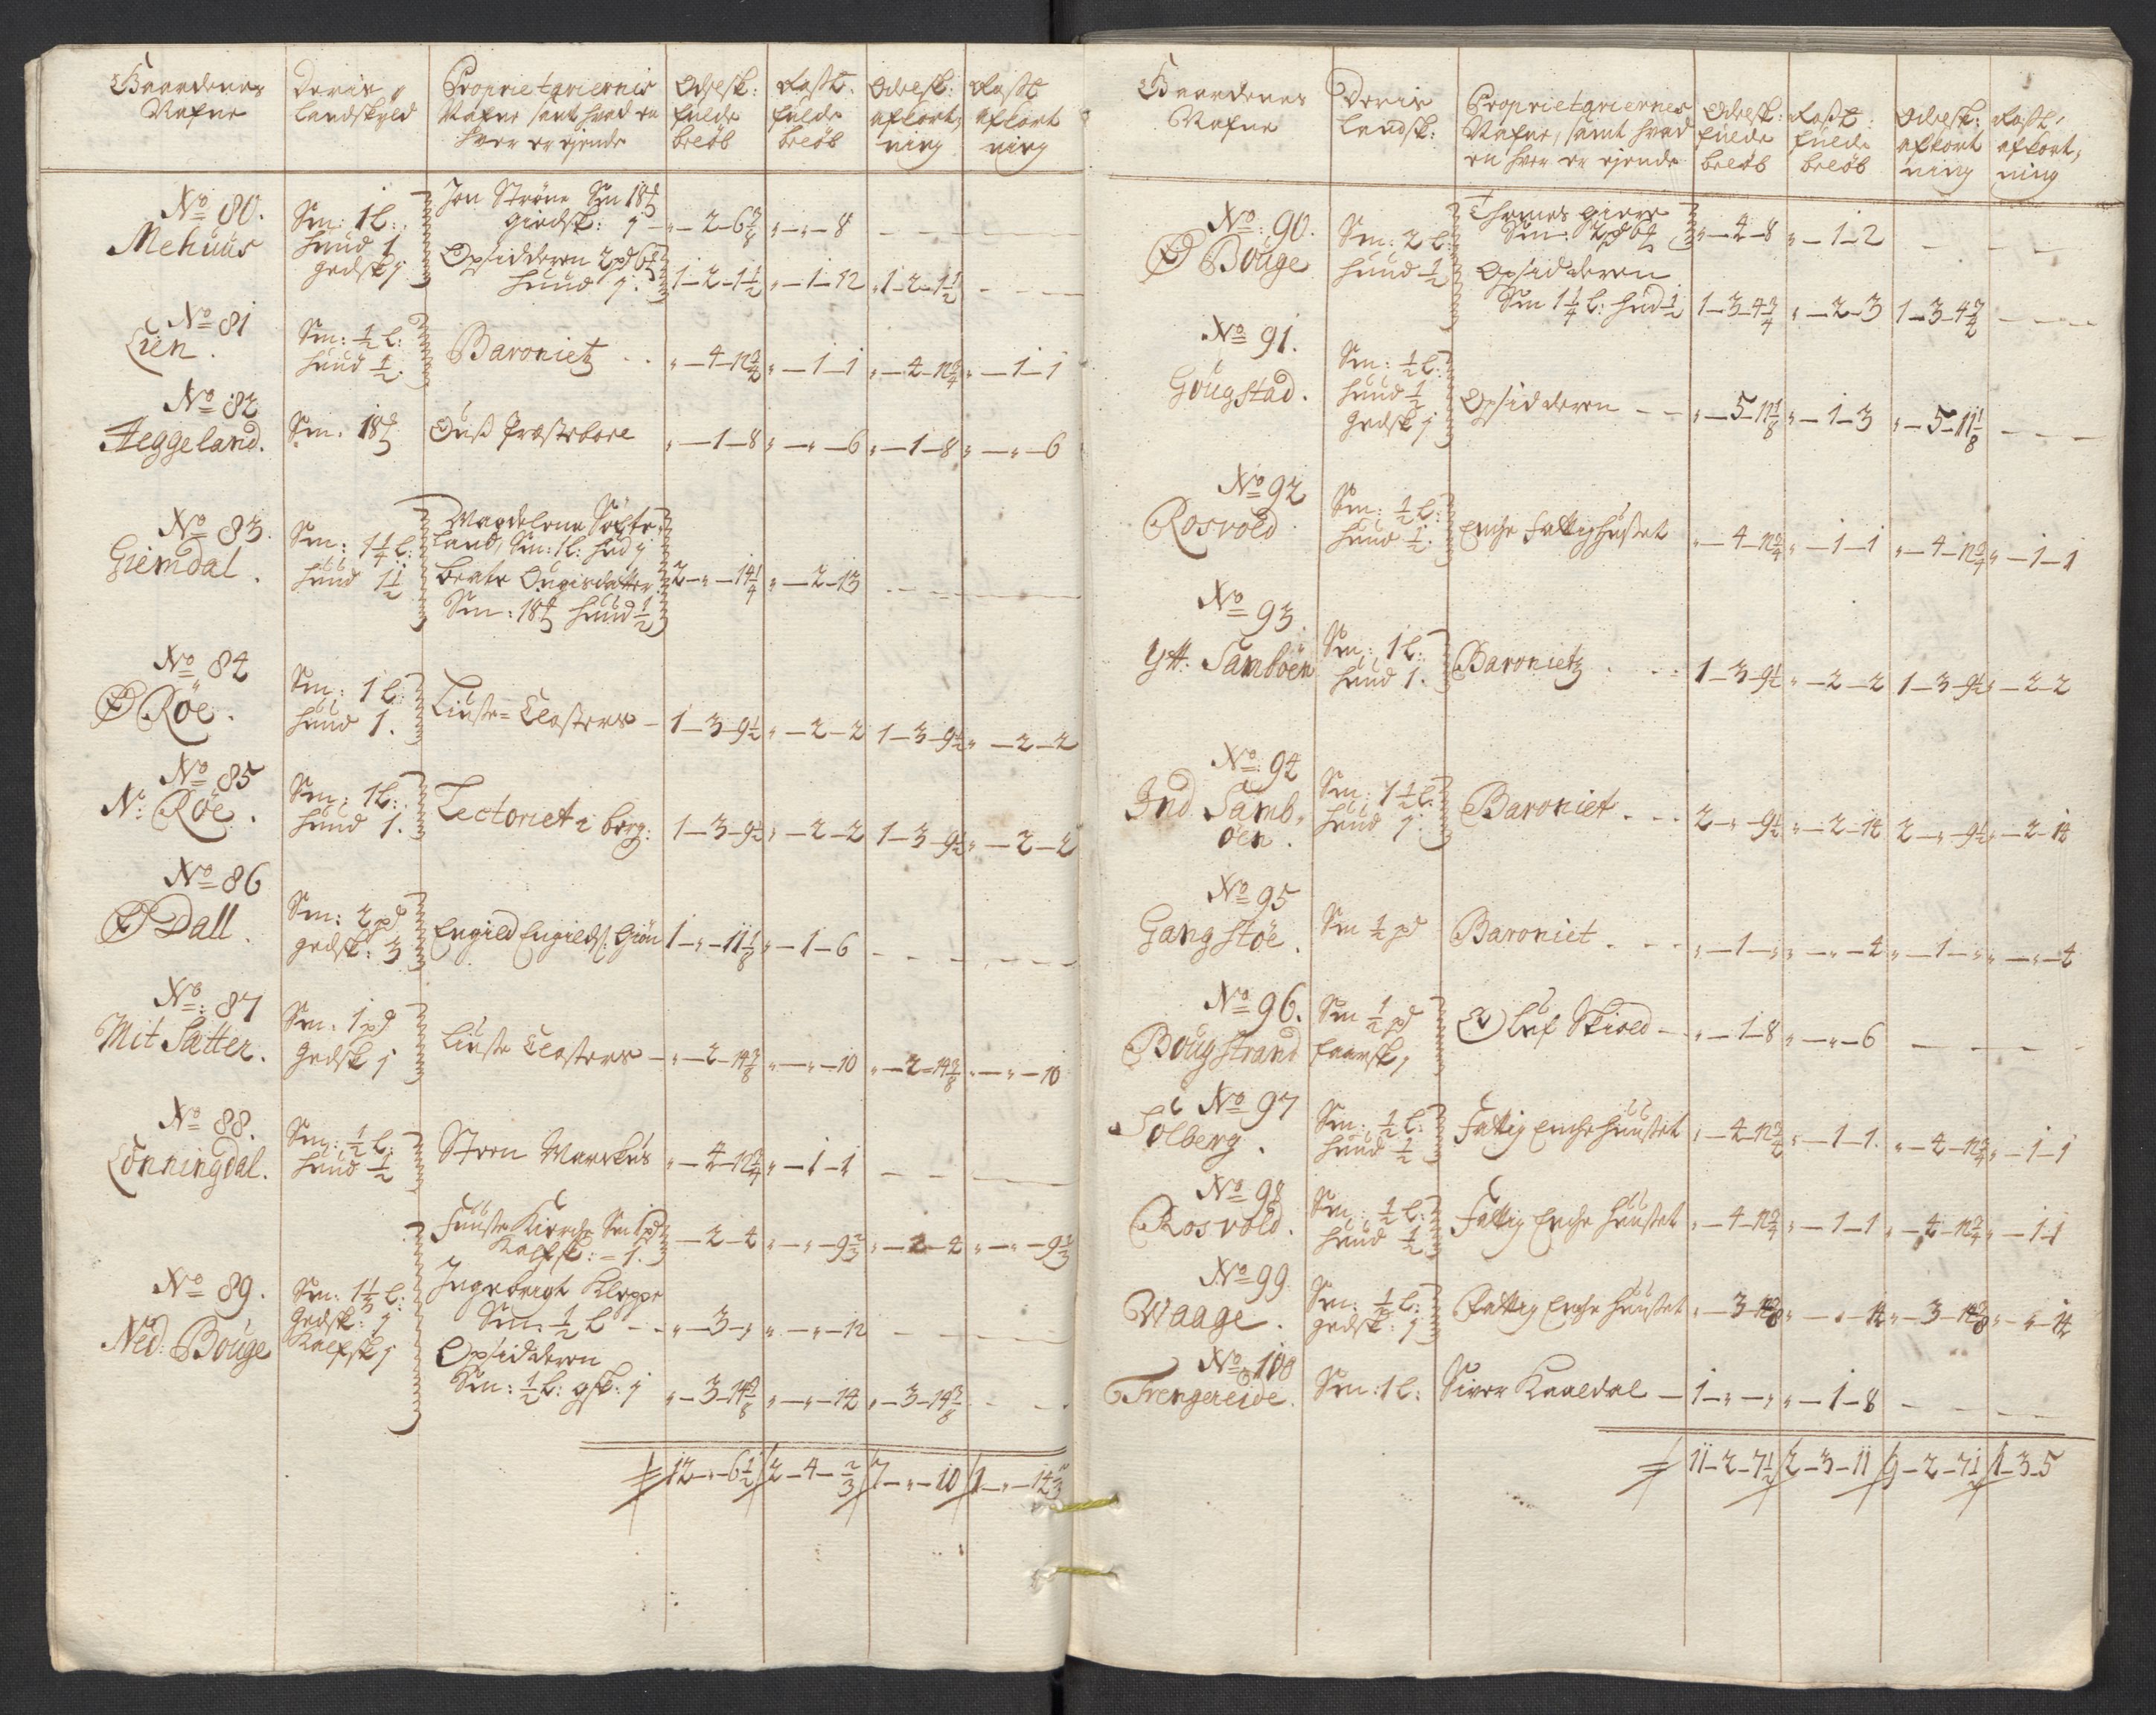 Gaardenes Nafne | Deris Landskyld | Proprietariernis Nafne samt hvad en hver er ejende | Odelsk: fulde beløb | Rostt: fulde beløb | Odelsk: afkortning | Rostt afkortning
No 80.
Mehuus | Sm: 1 l: huud 1 gedsk j | Jon Ströne Sm 18 ℔ giedsk: j | „—2—6 3/8 | „—„—8 | — | —
Opsidderen 2 pd 6 ℔ huud j. | 1—2—1 1/2 | „—1—12 | 1—2—1 1/2 | —
No 81
Lien. | Sm: 1/2 l: huud 1/2. | Baroniet | „—4—12 3/4 | „—1—1 | „—4—12 3/4 | „—1—1
No 82
Aeggeland. | Sm. 18 ℔ | Ouß Præstebord | „—1—8 | „—„—6 | „—1—8 | „—„—6
No 83.
Giemdal. | Sm: 1 1/4 l: huud 1 1/2 | Magdelena
land, Sm: 1 l: hud j
beate
Sm: 18 ℔ huud 1/2 | 2—„—14 1/4 | „—2—13 | — | —
No 84
Ø Röe. | Sm: 1 l: huud 1. | Liuste Closters | 1—3—9 1/2 | „—2—2 | 1—3—9 1/2 | „—2—2
No 85
N: Röe. | Sm: 1 l: huud 1. | Lectoriet i berg: | 1—3—9 1/2 | „—2—2 | 1—3—9 1/2 | „—2—2
No 86
Ø Dall. | Sm: 2 pd gedsk: 3 | Engild Engilds: | 1—„—11 1/8 | „—1—6 | — | —
No: 87
Mit Sætter. | Sm. 1 pd Gedsk j | Liuste Closters | „—2—14 3/8 | „—„—10 | „—2—14 3/8 | „—„—10
No 88.
Lönningdal. | Sm: 1/2 l: huud 1/2 | Steen Marckus | „—4—12 3/4 | „—1—1 | — | —
Fuuste Kircke Sm 1 pd Kalfsk: 1. | —2—4 | „—„—9 2/3 | „—2—4 | „—„—9 2/3
No 89.
Ned: Böuge | Sm: 1 1/3 l: Gedsk: j Kalfsk j | Ingebrigt Kleppe Sm: 1/2 l | „—3—„ | „—„—12 | — | —
Opsidderen Sm: 1/2 l: gsk: j | „—3—14 3/8 | „—„—14 | „—3—14 3/8 | —
12—„—6 1/2 | 2—4—2/3 | 7—„—10 | 1—„—14 2/3
Gaardenes Nafne | Deris Landsk: | Proprietariernes Nafne, samt hvad en hver er ejende | Odelsk: fulde beløb | Rostt: fulde beløb | Odelsk: afkortning | Rostt: afkortning
No: 90.
Ø Böuge | Sm: 2 l: huud 1/2 | Thomes Giere Sm: 2 pd 6 ℔ | „—4—8 | „—1—2 | — | —
Opsidderen Sm 1 1/4 l: hud 1/2 | 1—3—4 3/4 | „—2—3 | 1—3—4 3/4 | —
No 91.
Göugstad. | Sm: 1/2 l: huud 1/2 Gedsk j | Opsidderen | „—5—11 1/8 | „—1—3 | „—5—11 1/8 | —
No 92
Rosvold. | Sm: 1/2 l: huud 1/2. | Enche Fattighuset | „—4—12 3/4 | „—1—1 | „—4—12 3/4 | „—1—1
No 93.
Ytt. Samböen | Sm: 1 l: huud 1. | Baroniet | 1—3—9 1/2 | „—2—2 | 1—3—9 1/2 | „—2—2
No: 94
Ind. Samböen. | Sm: 1 1/2 l: huud j. | Baroniet | 2—„—9 1/2 | „—2—14 | 2—„—9 1/2 | „—2—14
No 95
Gangstöe. | Sm 1/2 pd | Baroniet | „—1—„ | „—„—4 | „—1—„ | „—„—4
No 96.
Böugstrand | Sm 1/2 pd faarsk j | Oluf Skiold | „—1—8 | „—„—6 | — | —
No 97
Solberg. | Sm: 1/2 l: huud 1/2 | Fattig Enche huuset | „—4—12 3/4 | „—1—1. | „—4—12 3/4 | „—1—1
No 98
Rosvold. | Sm: 1/2 l: huud 1/2 | Fattig Enche huuset | „—4—12 3/4 | „—1—1 | „—4—12 3/4 | „—1—1
No 99.
Waage. | Sm: 1/2 l: gedsk: j | Fattig Enche huuset | „—3—14 3/8 | „—„—14 | „—3—14 3/8 | „—„—14
No 100
Trengereide. | Sm: 1 l: | Siver Kaaldal | 1—„—„ | „—1—8 | — | —
11—2—7 1/2 | 2—3—11 | 9—2—7 1/2 | 1—3—5